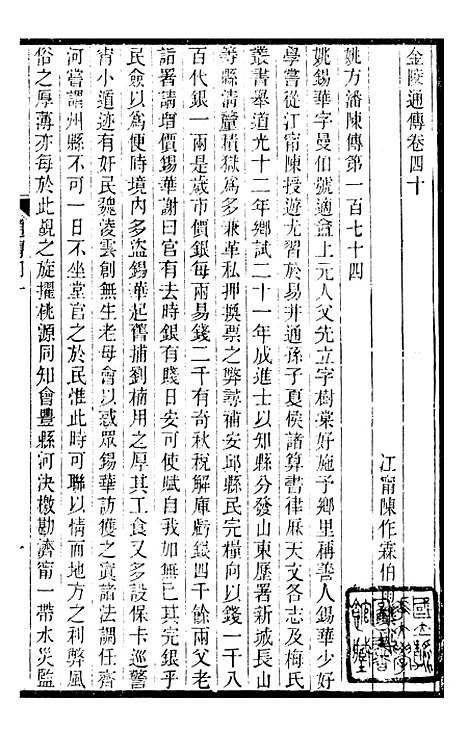 金陵通傳卷四十
江甯陳作霖伯雨
姚方潘陳傳第一百七十四
姚錫華字曼伯號適盦上元人父先立字樹棠好施予鄉里稱善人錫華少好
學嘗從江甯陳授遊尤習於易并通孫子夏侯諸算書律厤天文各志及梅氏
叢書舉道光十二年鄉試二十一年成進士以知縣分發山東歷署新城長山
等縣淸釐積獄爲多兼革私押換票之弊尋補安邱縣民完糧向以錢一千八
百代銀一兩是歲市價銀每兩易錢二千有奇秋稅解庫虧銀四千餘兩父老
詣署請增價錫華謝曰官有去時銀有賤日安可使後來者藉口
民僉以爲便時境内多盜錫華起舊捕劉楠用之厚其工食又多設保卡巡警
宵小遁迹有奸民魏淩雲創無生老母會以惑眾錫華訪獲之寘諸法調任齊
河嘗謂州縣不可一日不坐堂官之於民惟此時可聯以情而地方之利弊風
俗之厚薄亦每於此覘之旋擢桃源同知會豐縣河決檄勘濟甯一帶水災監